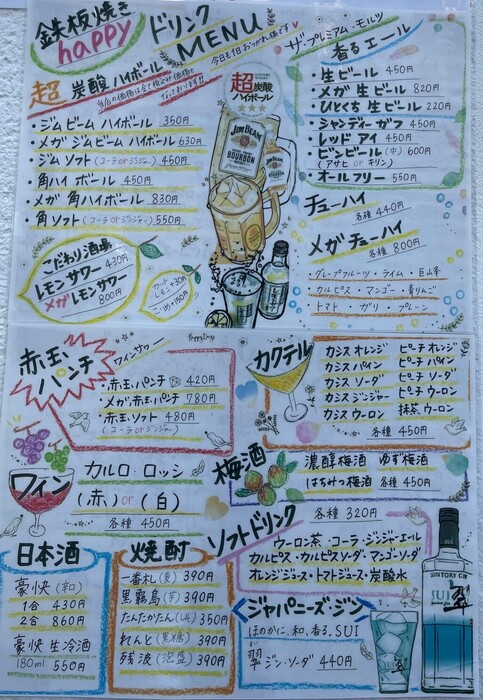 鉄板焼き
happy
ドリンク
MENU
今日も1日おつかれ様です♥
超炭酸ハイボール
当店の価格は全て税込み価格となっております!!
・ジムビームハイボール 350円
・メガ ジムビームハイボール 630円
・ジムソフト(コーラorジンジャー) 450円
・角ハイボール 450円
・メガ 角ハイボール 830円
・角ソフト(コーラorジンジャー) 550円
超
炭酸
ハイボール
JIM BEAM
BOURBON
ザ・プレミアム・モルツ
香るエール
・生ビール 450円
・メガ 生ビール 820円
・ひとくち 生ビール 220円
・シャンディーガフ 450円
・レッドアイ 450円
・ビンビール(中) 600円
(アサヒ or キリン)
・オールフリー 550円
チューハイ
各種 440円
メガ チューハイ
各種 800円
グレープフルーツ・ライム・巨山峯
カルピス・マンゴー・青りんご
トマト・ガリ・プレーン
こだわり酒場
レモンサワー 430円
メガ レモンサワー 800円
カットレモン+30円
赤玉パンチ
ワインサワー
・赤玉パンチ 420円
・メガ赤玉パンチ 780円
・赤玉ソフト 480円
(コーラorジンジャー)
Happy Days
カクテル
カシスオレンジ ピーチオレンジ
カシスパイン ピーチパイン
カシスソーダ ピーチソーダ
カシスジンジャー ピーチウーロン
カシスウーロン 抹茶ウーロン
各種 450円
ワイン
カルロ・ロッシ
(赤) or (白)
各種 450円
梅酒
濃醇梅酒 ゆず梅酒
はちみつ梅酒 各種 450円
ソフトドリンク
各種 320円
ウーロン茶・コーラ・ジンジャーエール
カルピス・カルピスソーダ・マンゴソーダ
オレンジジュース・トマトジュース・炭酸水
日本酒
豪快(辛口)
1合 430円
2合 860円
豪快生冷酒
180ml 550円
焼酎
一番札(麦) 390円
黒霧島(芋) 390円
たんたかたん(しそ) 350円
れんと(黒糖) 390円
残波(泡盛) 390円
ジャパニーズ・ジン
ほのかに、和、香る。SUI
翠ジン・ソーダ 440円
SUNTORY GIN
SUI
翠